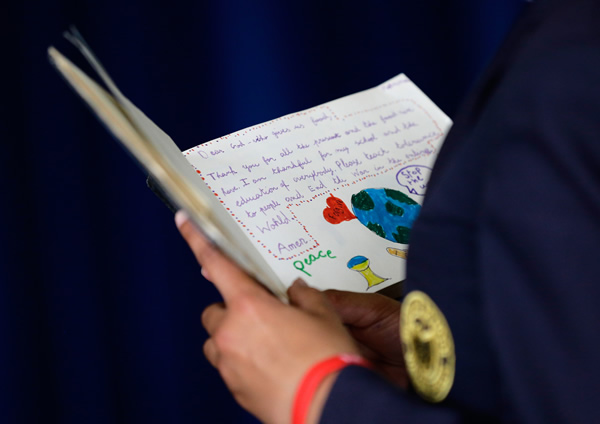 Dear God - who gives us food,
Thank you for all the and the food we
have I am thankful for my school and the
education of everybody. Please teach tolerance
to people and End the war in the
World.
Amen
peace
Stop